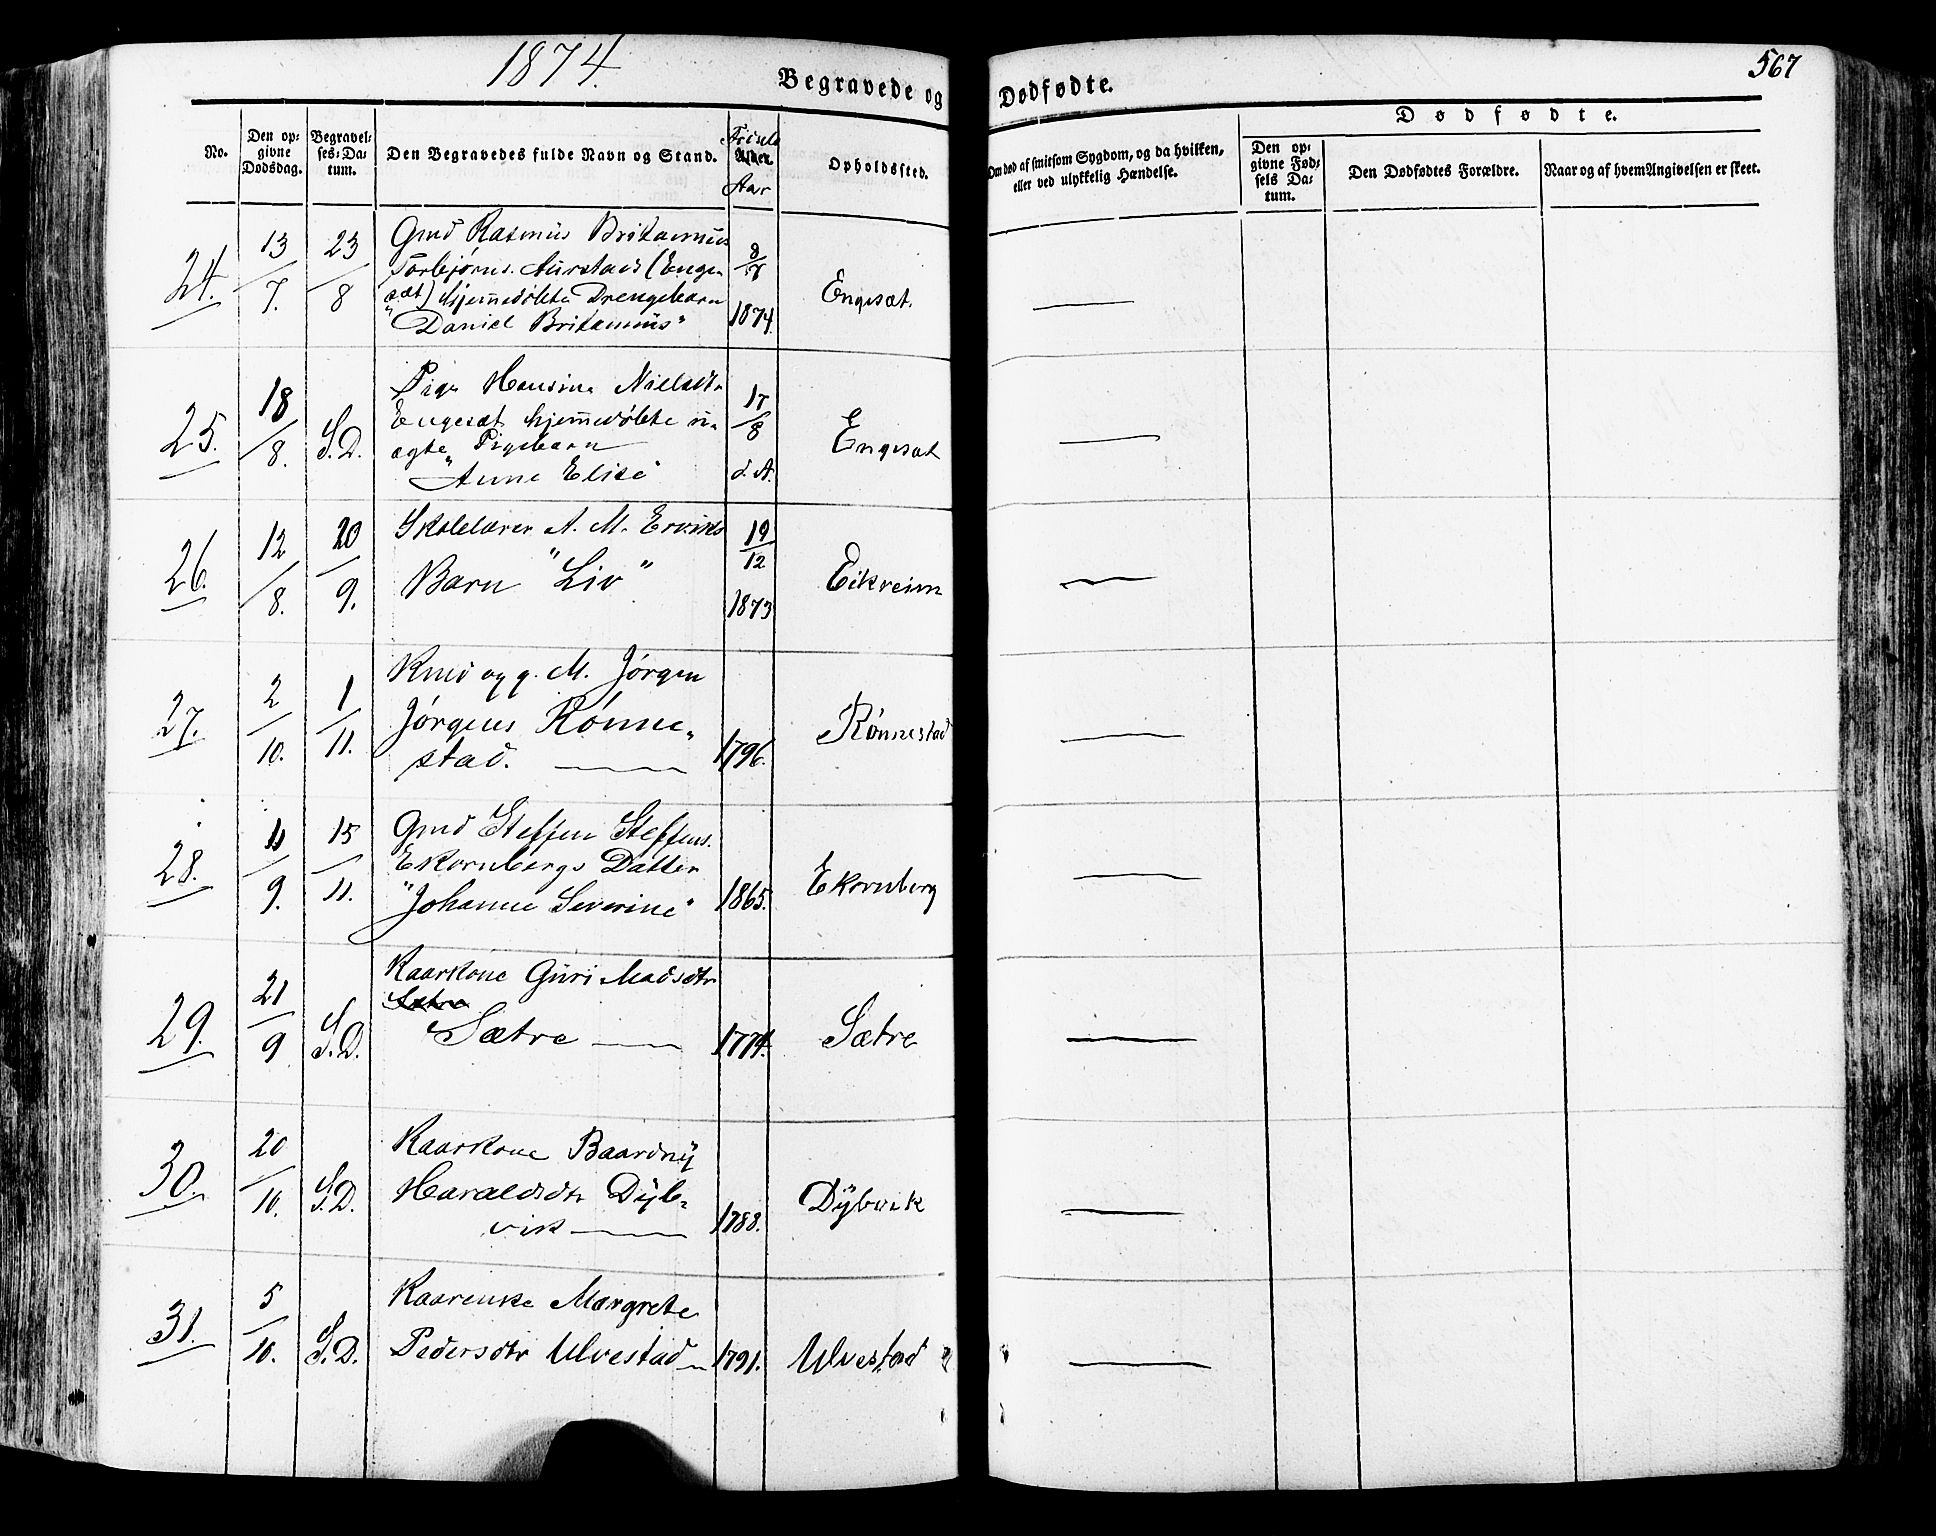 1874.
567
Begravede og Dødfødte.
No.
Den op-
givne
Dødsdag.
Begravel-
ses-Da-
tum.
Den Begravedes fulde Navn og Stand.
Fødsels
Alder.
Aar
Opholdssted.
Om død af smitsom Sygdom, og da hvilken,
eller ved ulykkelig Hændelse.
Dødfødte.
Den op-
givne Fød-
sels Da-
tum.
Den Dødfødtes Forældre.
Naar og af hvem Angivelsen er skeet.
24.
13/7.
23/8
Gmd Rasmus Britannius
Torbjørns. Aurstad (Enge-
sæt) hjemmedøbte Drengebarn
"Daniel Britannius"
8/7
1874.
Engesæt.
25.
18/8.
S.D.
Pige Hansine Nielsdtr
Engesæt hjemmedøbte u-
ægte Pigebarn
"Anne Elise"
17/8
d.A.
Engesæt
26.
12/8.
20/9.
Skolelærer A. M. Erviks
Barn "Liv"
19/12
1873
Eikreim
27.
2/10.
1/11.
Kmd og g. M. Jørgen
Jørgens Rønne-
stad.
1796.
Rønnestad
28.
11/9.
15/11.
Gmd Steffen Steffens.
Ekornbergs Datter
"Johanne Severine"
1865.
Ekornberg
29.
21/9
S.D.
Kaarkone Guri Madsdtr
Sætre
Sætre
1774.
Sætre
30.
20/10.
S.D.
Kaarkone Baardnÿ
Haraldsdtr Dÿb-
vik
1788.
Dÿbvik
31.
5/10.
S.D.
Kaarenke Margrete
Pedersdtr Ulvestad
1791.
Ulvestad